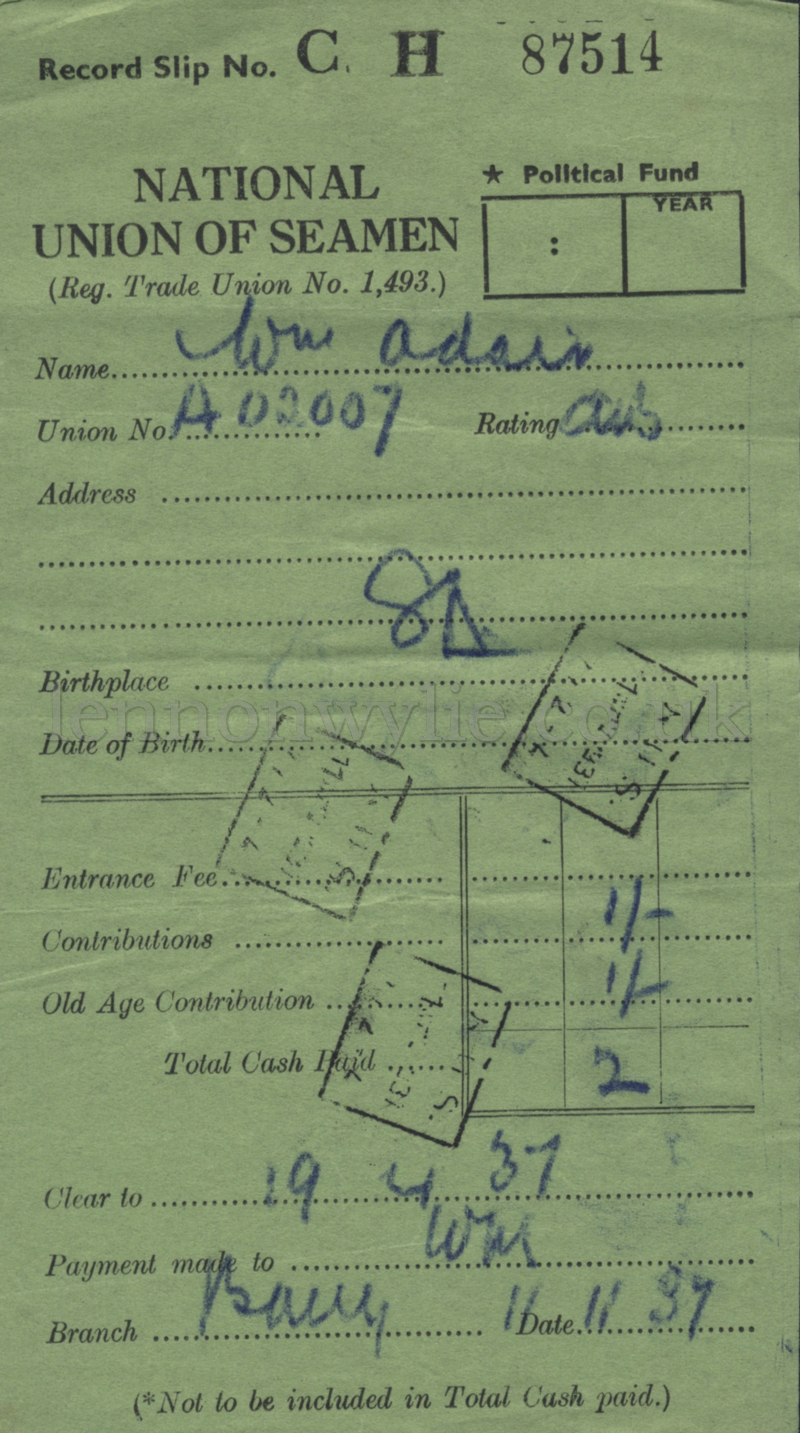 Record Slip No. C. H 87514
NATIONAL
UNION OF SEAMEN
(Reg. Trade Union No. 1,493.)
★ Political Fund
: YEAR
Name Wm Adair
Union No. A 02007 Rating
Address
Birthplace
lennonwylie.co.uk
Date of Birth
Entrance Fee
Contributions 1/-
Old Age Contribution 1/-
Total Cash Paid 2
Clear to 19 4 37
Payment made to WM
Branch Barry Date 11 11 37
(*Not to be included in Total Cash paid.)